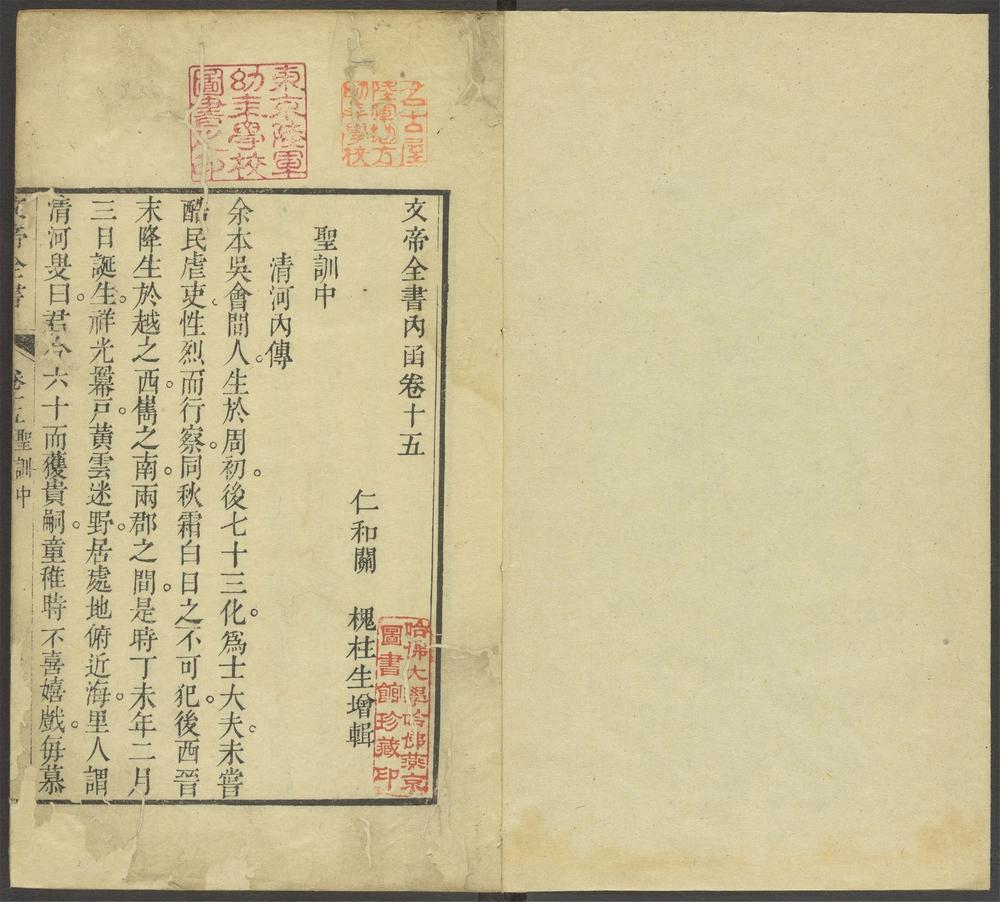 名古屋
陸軍地方
幼年學校
東京陸軍
幼年學校
圖書之印
文帝全書內函卷十五
仁和關 槐柱生增輯
哈佛大學哈佛燕京
圖書館珍藏印
聖訓中
清河內傳
余本吳會間人。生於周初。後七十三化。爲士大夫。未嘗
酷民虐吏。性烈而行察。同秋霜白日之不可犯。後西晉
末降生於越之西。雋之南。兩郡之間。是時丁未年二月
三日誕生。祥光羃戶。黃雲迷野。居處地俯近海。里人謂
清河叟曰。君今六十而獲貴嗣。童稚時不喜嬉戲。每慕
文帝全書 卷十五聖訓中